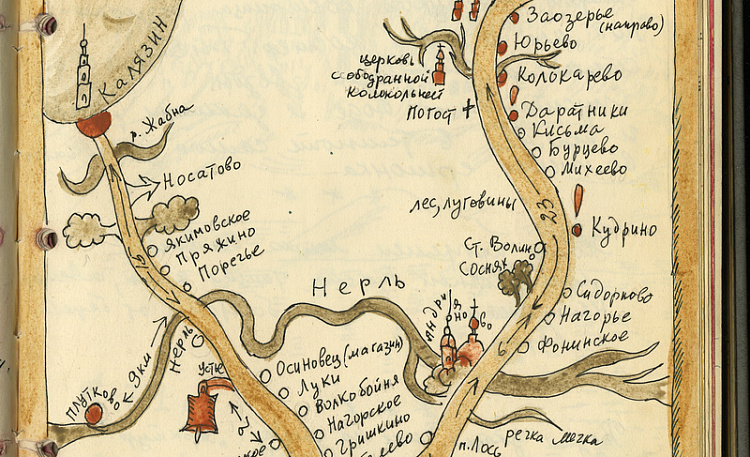 Калязин
р. Жабна
Носатово
Якимовское
Пряжино
Поречье
Заозерье
(направо)
Юрьево
Колокарево
церковь
с ободранной
колокольней
Погост
Даратники
Кисьма
Бурцево
Михеево
лес, луговины
23
Кудрино
Сосняк
Сидорково
Нагорье
Фонинское
6
Нерль
Андрианово
Нерль
9км
Плутково
Осиновец (магазин)
Луки
Волкобойня
Нагорское
Гришкино
п. Лось
речка Мечка